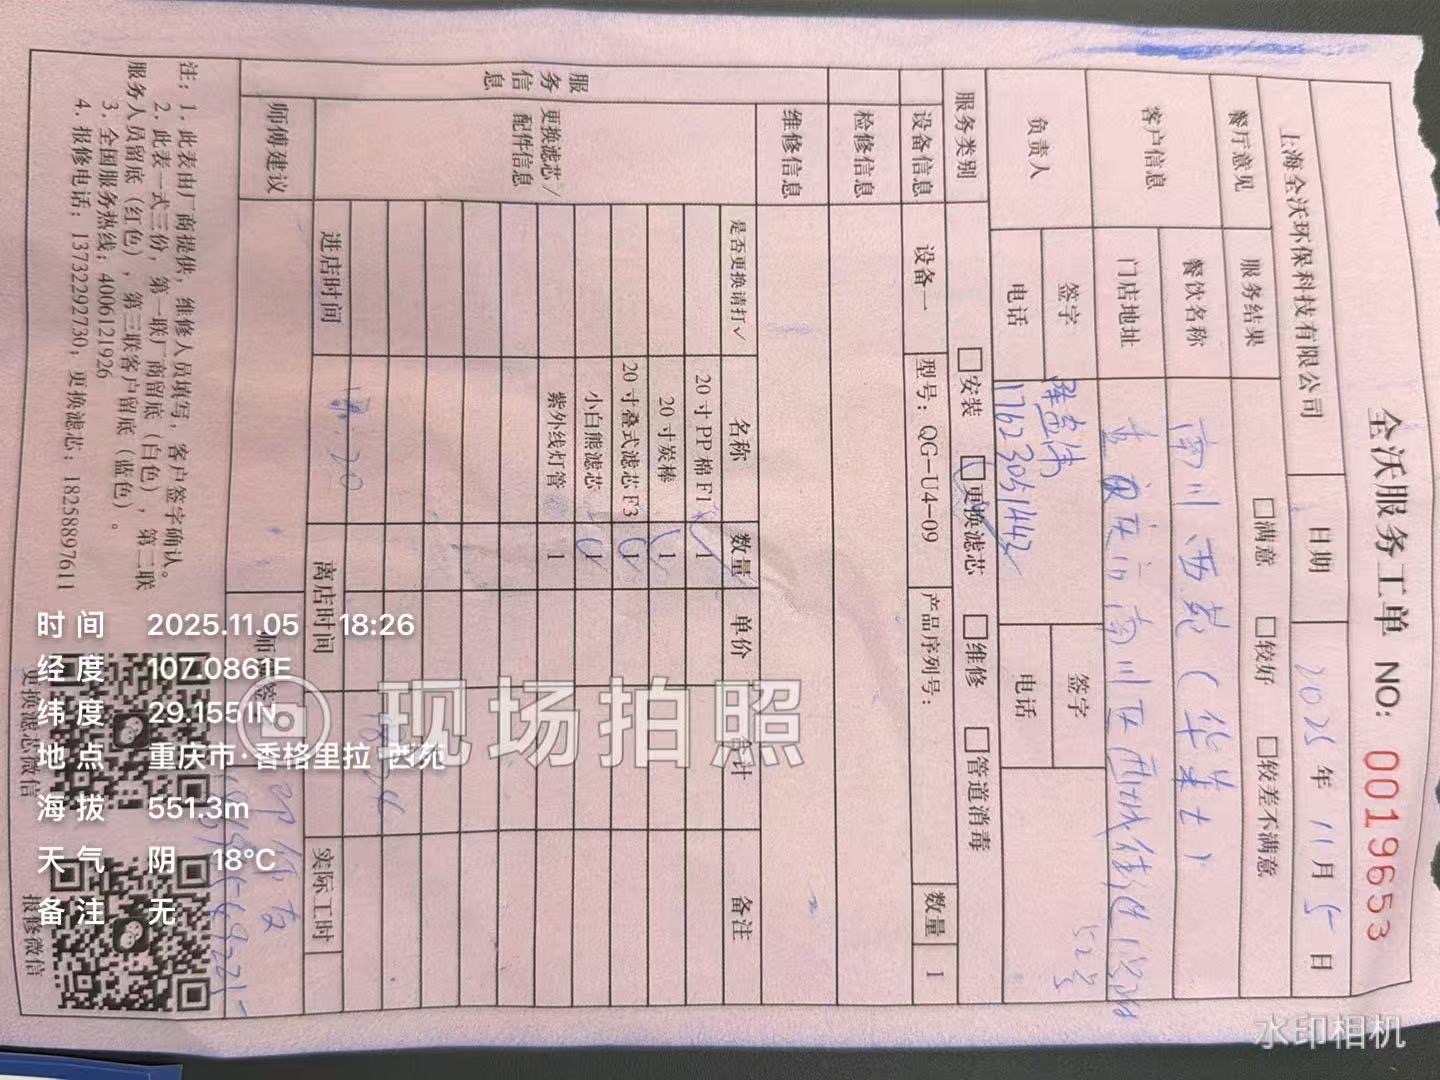 全沃服务工单 NO: 0019653
上海全沃环保科技有限公司 日期 2025年 11月 5日
餐厅意见 服务结果 □满意 □较好 □较差不满意
客户信息 餐饮名称 南川西苑(华莱士)
门店地址 南川区西城街道
52号
负责人 签字 签字
电话 17623051442 电话
服务类别 □安装 □更换滤芯 □维修 □管道消毒
设备信息 设备一 型号: QG-U4-09 产品序列号: 数量 1
检修信息
维修信息
服务信息
更换滤芯/配件信息
是否更换请打✓ 名称 数量 单价 合计 备注
20寸PP棉F1 1
20寸炭棒 1
20寸叠式滤芯F3 1
小白熊滤芯 1
紫外线灯管 1
进店时间 离店时间 实际工时
师傅建议
注: 1. 此表由厂商提供, 维修人员填写, 客户签字确认。
2. 此表一式三份, 第一联厂商留底 (白色), 第二联
服务人员留底 (红色), 第三联客户留底 (蓝色)。
3. 全国服务热线: 4006121926
4. 报修电话: 13732292730; 更换滤芯: 18258897611
更换滤芯微信
报修微信
时间 2025.11.05 18:26
经度 107.0861E
纬度 29.1551N
地点 重庆市·香格里拉 西苑
海拔 551.3m
天气 阴 18℃
备注 无
现场拍照
水印相机